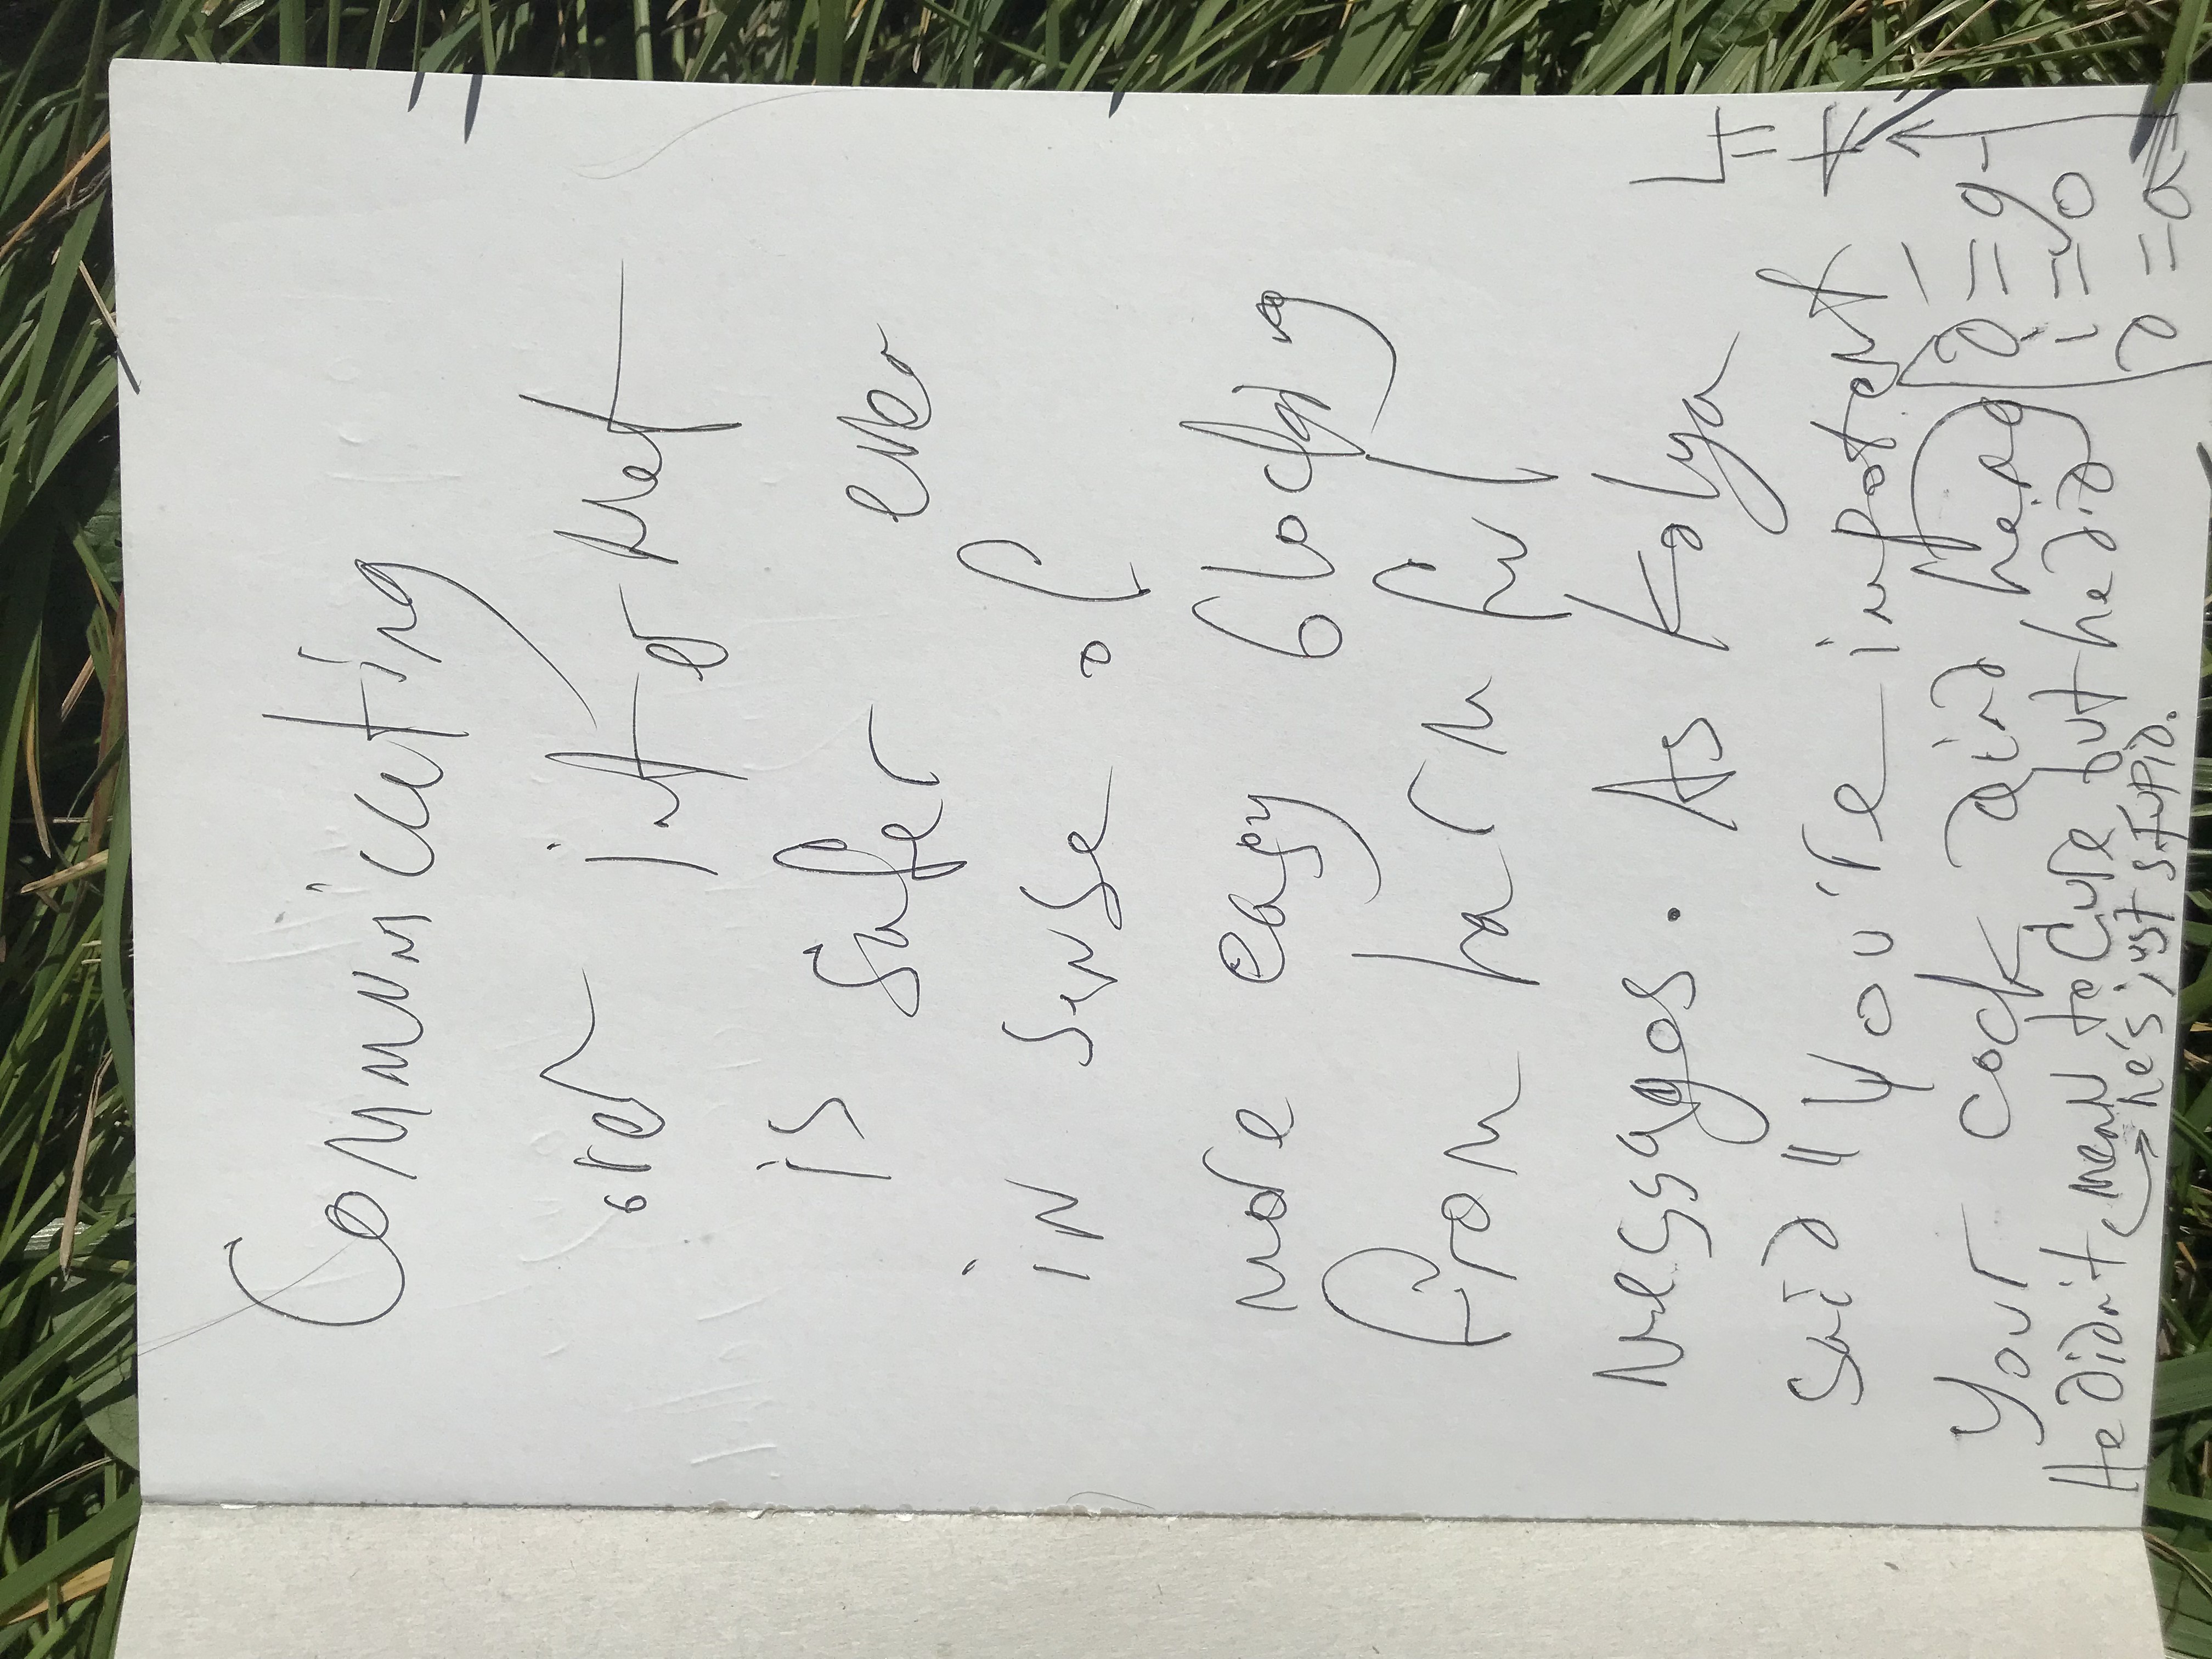 Communicating
over internet
is safer even
in sense of
more easy blocking
from harmful
messages. As Kolya
said "You're impotent
your cock
He didn't mean to cure but he did
he's just stupid.
d = g
i = o
d = a